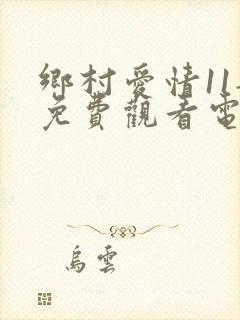 鄉村愛情11
免費觀看電
烏雲